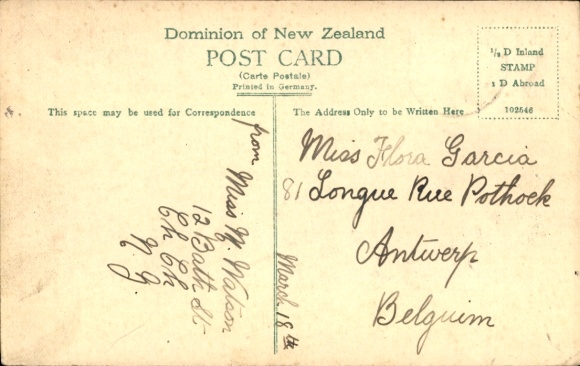 Dominion of New Zealand
POST CARD
(Carte Postale)
Printed in Germany.
½ D Inland
STAMP
1 D Abroad
102546
This space may be used for Correspondence
The Address Only to be Written Here
from Miss M. Watson
12 Bath St
Ch Ch
N Z
March 18th
Miss Flora Garcia
81 Longue Rue Pothoek
Antwerp
Belguim